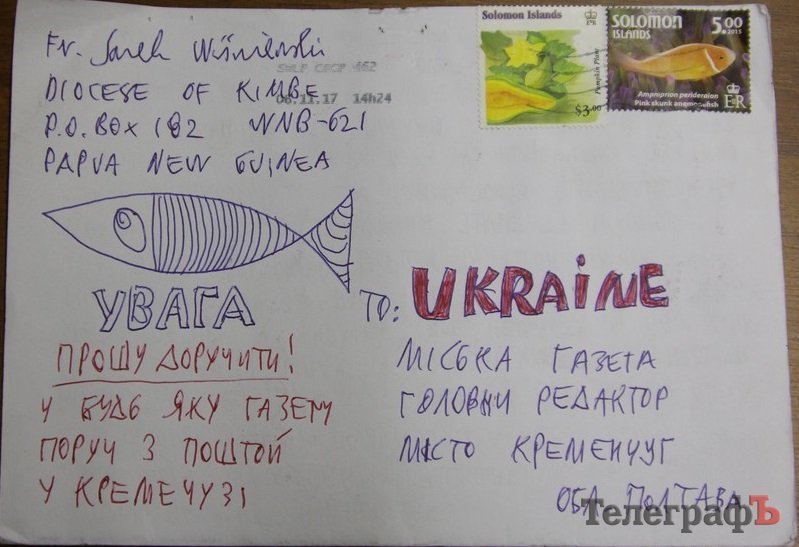 Fr. Jarek Wiśniewski
DIOCESE OF KIMBE
P.O. BOX 182 WNB-621
PAPUA NEW GUINEA
06.11.17 14h24
Solomon Islands
Pumpkin Plant
$3.00
SOLOMON
ISLANDS
5.00
2015
Amphiprion perideraion
Pink skunk anemonefish
УВАГА
ПРОШУ ДОРУЧИТИ!
У БУДЬ ЯКУ ГАЗЕТУ
ПОРУЧ З ПОШТОЙ
У КРЕМЕЧУЗІ
TO: UKRAINE
МІСЬКА ГАЗЕТА
ГОЛОВНИ РЕДАКТОР
МІСТО КРЕМЕНЧУГ
ОБЛ ПОЛТАВА
ТелеграфЪ